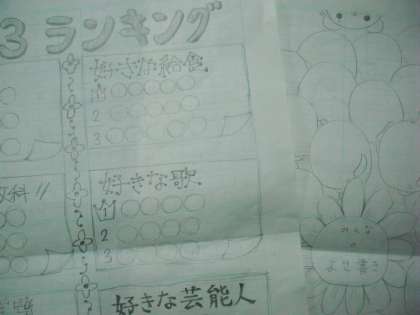 3 ランキング
好きな給食
1
2
3
教科!!
好きな歌
1
2
3
好きな芸能人
みんなの
よせ書き